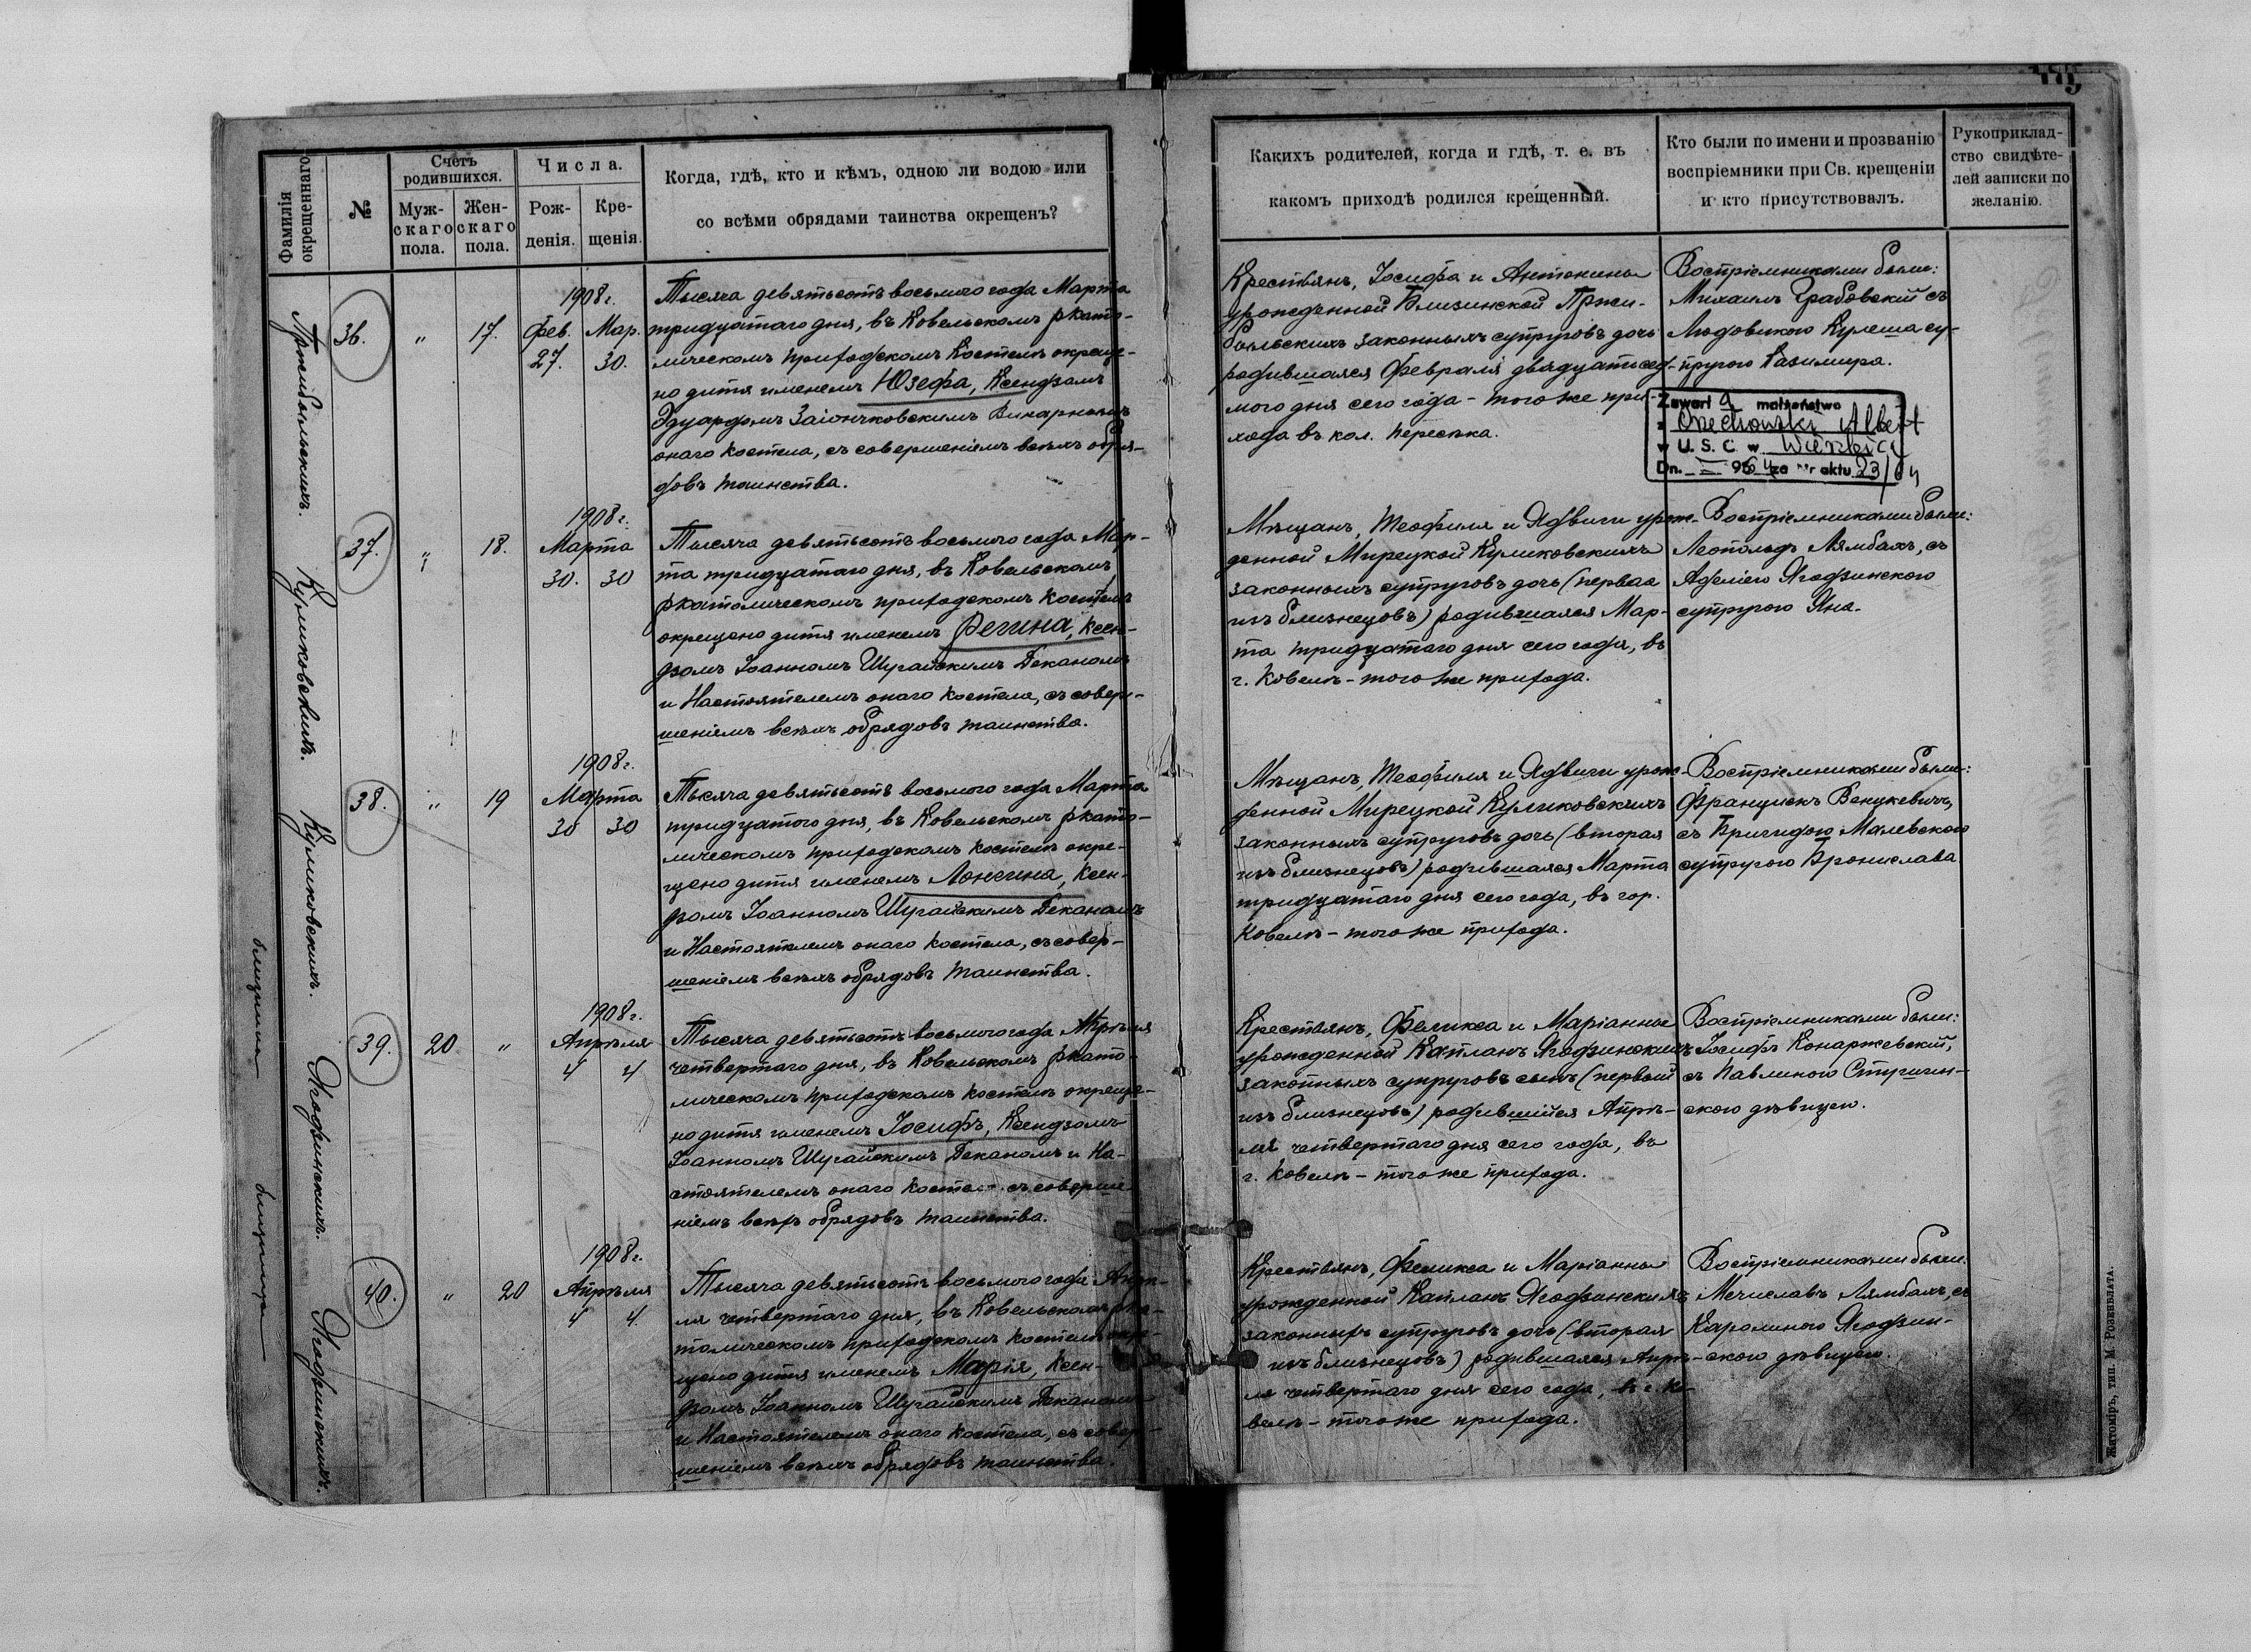 175
Фамилія
окрещеннаго
№
Счетъ
родившихся.
Муж-
скаго
пола.
Жен-
скаго
пола.
Числа.
Рож-
денія.
Кре-
щенія.
Когда, гдѣ, кто и кѣмъ, одною ли водою или
со всѣми обрядами таинства окрещенъ?
Какихъ родителей, когда и гдѣ, т. е. въ
какомъ приходѣ родился крещенный.
Кто были по имени и прозванію
воспріемники при Св. крещеніи
и кто присутствовалъ.
Рукоприклад-
ство свидѣте-
лей записки по
желанію.
Пржибыльскихъ.
36.
"
17.
1908 г.
Фев. Мар.
27. 30.
Тысяча девятьсотъ восьмого года Марта
тридцатаго дня, въ Ковельскомъ ркато-
лическомъ приходскомъ Костелѣ окреще-
но дитя именемъ Юзефа, Ксендзомъ
Эдуардомъ Заіончковскимъ Викарнымъ
онаго костела, съ совершеніемъ всѣхъ обря-
довъ таинства.
Крестьянъ, Іосифа и Антонины
урожденной Близинской Пржи-
быльскихъ законныхъ супруговъ дочь
родившаяся Февраля двадцатисед-
мого дня сего года - того же при-
хода въ кол. Пересѣка.
Воспріемниками были:
Михаилъ Грабовскій съ
Людовикою Кулеша су-
пругою Казимира.
Zawarł a małżeństwo
z Orzechowski Albert
w U. S. C. w
Dn. 1964 za Nr aktu 23/64
Куликовскихъ.
37.
"
18.
1908 г.
Марта
30. 30
Тысяча девятьсотъ восьмого года Мар-
та тридцатаго дня, въ Ковельскомъ
ркатолическомъ приходскомъ костелѣ
окрещено дитя именемъ Регина, Ксен-
дзомъ Іоанномъ Шугайскимъ Деканомъ
и Настоятелемъ онаго костела, съ совер-
шеніемъ всѣхъ обрядовъ таинства.
Мѣщанъ, Теофиля и Ядвиги урож-
денной Мирецкой Куликовскихъ
законныхъ супруговъ дочь (первая
изъ близнецовъ) родившаяся Мар-
та тридцатаго дня сего года, въ
г. Ковелѣ - того же прихода.
Воспріемниками были:
Леопольдъ Лямбахъ, съ
Аделіею Ягодзинскою
супругою Яна.
Куликовскихъ.
близнята
38.
"
19
1908 г.
Марта
30 30
Тысяча девятьсотъ восьмого года Марта
тридцатаго дня, въ Ковельскомъ ркато-
лическомъ приходскомъ костелѣ окре-
щено дитя именемъ Лонгина, Ксен-
дзомъ Іоанномъ Шугайскимъ Деканомъ
и Настоятелемъ онаго костела, съ совер-
шеніемъ всѣхъ обрядовъ таинства.
Мѣщанъ, Теофиля и Ядвиги урож-
денной Мирецкой Куликовскихъ
законныхъ супруговъ дочь (вторая
изъ близнецовъ) родившаяся Марта
тридцатаго дня сего года, въ гор.
Ковелѣ - того же прихода.
Воспріемниками были:
Францискъ Венцкевичъ,
съ Бригидою Малевскою
супругою Бронислава
Ягодзинскихъ.
39.
20
"
1908 г.
Апрѣля
4 4
Тысяча девятьсотъ восьмого года Апрѣля
четвертаго дня, въ Ковельскомъ ркато-
лическомъ приходскомъ костелѣ окреще-
но дитя именемъ Іосифъ, Ксендзомъ
Іоанномъ Шугайскимъ Деканомъ и На-
стоятелемъ онаго костела съ соверше-
ніемъ всѣхъ обрядовъ таинства.
Крестьянъ, Феликса и Маріанны
урожденной Капланъ Ягодзинскихъ
законныхъ супруговъ сынъ (первый
изъ близнецовъ) родившійся Апрѣ-
ля четвертаго дня сего года, въ
г. Ковелѣ - того же прихода.
Воспріемниками были:
Іосифъ Конаржевскій,
съ Павлиною Стугин-
скою дѣвицею.
Ягодзинскихъ.
близнята
40.
"
20
1908 г.
Апрѣля
4 4
Тысяча девятьсотъ восьмого года Апрѣ-
ля четвертаго дня, въ Ковельскомъ рка-
толическомъ приходскомъ костелѣ окре-
щено дитя именемъ Марія, Ксен-
дзомъ Іоанномъ Шугайскимъ Деканомъ
и Настоятелемъ онаго костела, съ совер-
шеніемъ всѣхъ обрядовъ таинства.
Крестьянъ, Феликса и Маріанны
урожденной Капланъ Ягодзинскихъ
законныхъ супруговъ дочь (вторая
изъ близнецовъ) родившаяся Апрѣ-
ля четвертаго дня сего года, въ г. Ко-
велѣ - того же прихода.
Воспріемниками были:
Мечиславъ Лямбахъ, съ
Каролиною Ягодзин-
скою дѣвицею.
Житоміръ, тип. М. Розенблата.